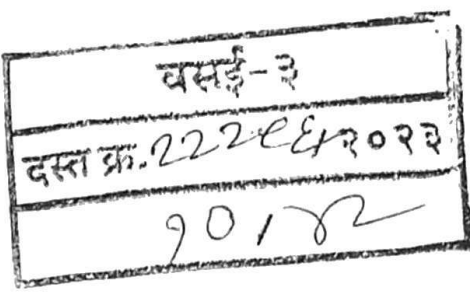 वसई-३
दस्त क्र. २२२९६/२०२३
१०/